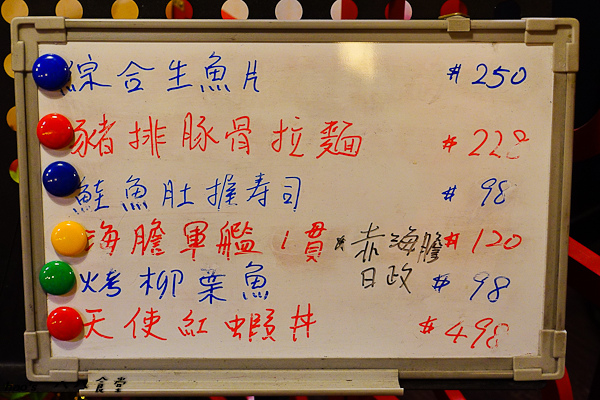 綜合生魚片 #250
豬排豚骨拉麵 #228
鮭魚肚握寿司 #98
海膽軍艦1貫 赤海膽 #120
日政
烤柳葉魚 #98
天使紅蝦丼 #498
食堂